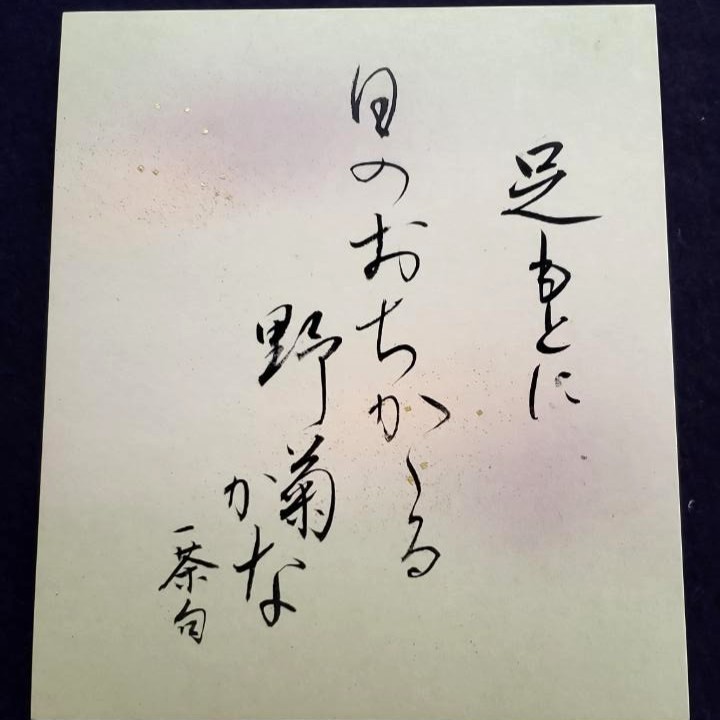 足もとに
日のおちかゝる
野菊
かな
一茶句